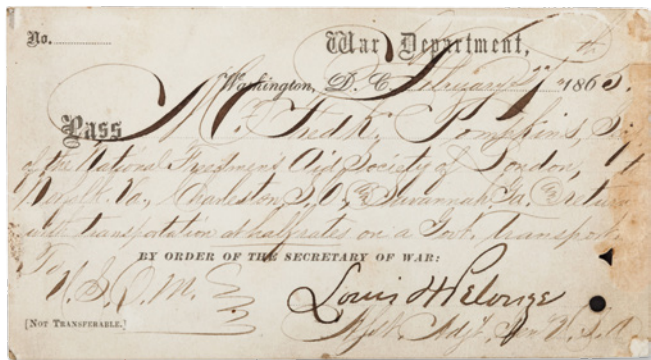 No.
War Department,
Washington, D. C. February 27th 1865.
Pass Mr. Fredk. Tompkins,
of the National Freedmen's Aid Society of London, to
Norfolk. Va., Charleston S. C. & Savannah Ga. & return
with transportation at half rates on a Govt. transport.
BY ORDER OF THE SECRETARY OF WAR:
To
U. S. Q. M.
Louis H Pelouze
[NOT TRANSFERABLE.]
Asst. Adjt. Gen U. S. A